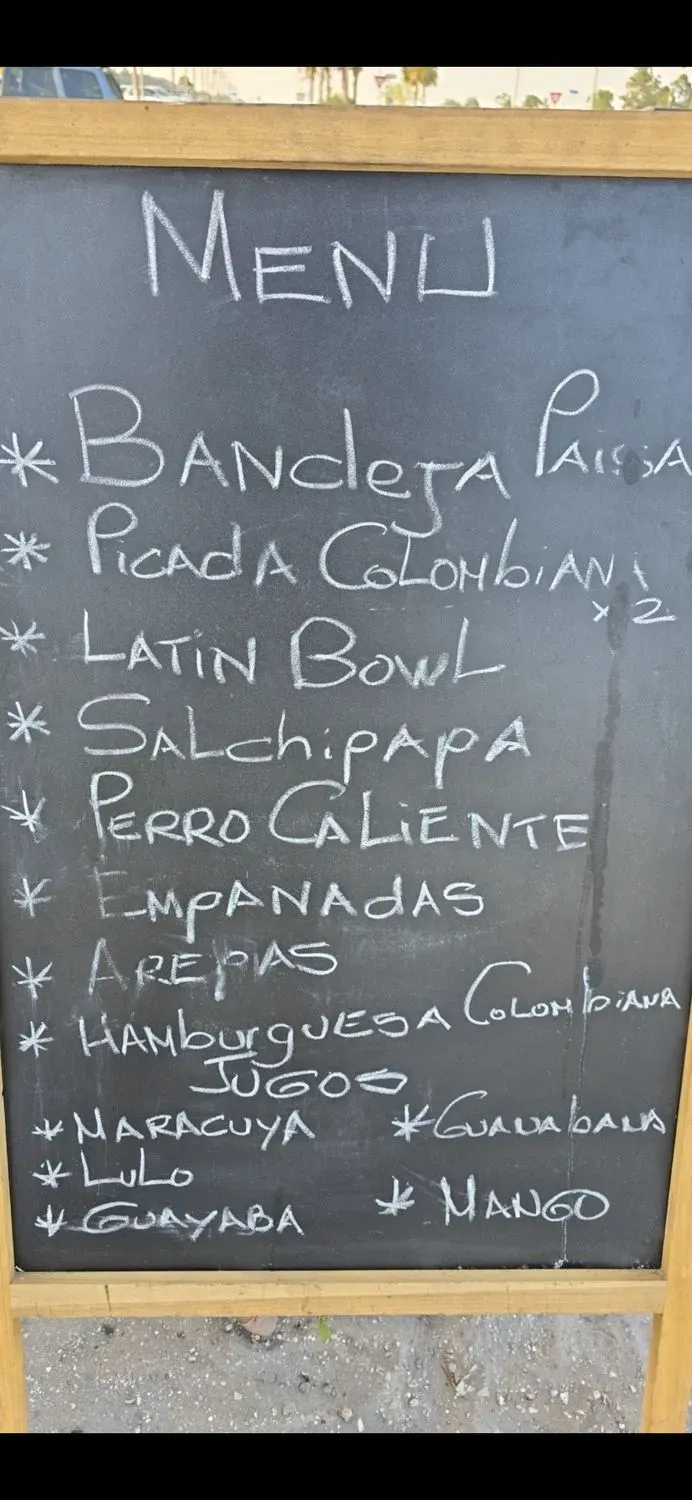 MENU
* BANdeJA PAiSA
* PiCAdA COLOMbiANA
x2
* LATiN BOWL
* SALchipApA
* PERRO CALiENTE
* EMpANAdAS
* AREPAS
* HAMburgUESA COLOMbiANA
JUGOS
* MARACUYA * GUANAbANA
* LULO
* GUAYABA * MANGO